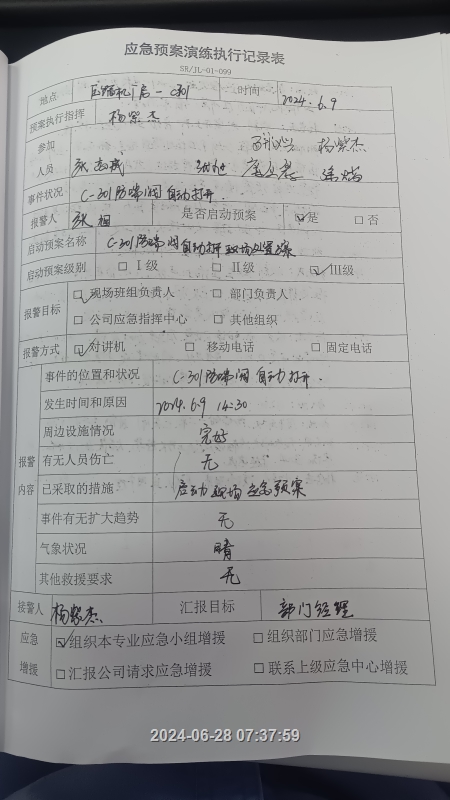 应急预案演练执行记录表
SR/JL-01-099
地点 压缩机厂房-C301 时间 2024.6.9
预案执行指挥 杨紫杰
参加人员 杨紫杰
事件状况 C-301防喘阀自动打开.
报警人 张相 是否启动预案 ☑是 □否
启动预案名称 C-301防喘阀自动打开现场处置方案
启动预案级别 □Ⅰ级 □Ⅱ级 ☑Ⅲ级
报警目标 ☑现场班组负责人 □部门负责人
□公司应急指挥中心 □其他组织
报警方式 ☑对讲机 □移动电话 □固定电话
报警内容
事件的位置和状况 C-301防喘阀自动打开.
发生时间和原因 2024.6.9 14:30
周边设施情况 完好
有无人员伤亡 无
已采取的措施 启动现场应急预案
事件有无扩大趋势 无
气象状况 晴
其他救援要求 无
接警人 杨紫杰 汇报目标 部门经理
应急增援 ☑组织本专业应急小组增援 □组织部门应急增援
□汇报公司请求应急增援 □联系上级应急中心增援
2024-06-28 07:37:59